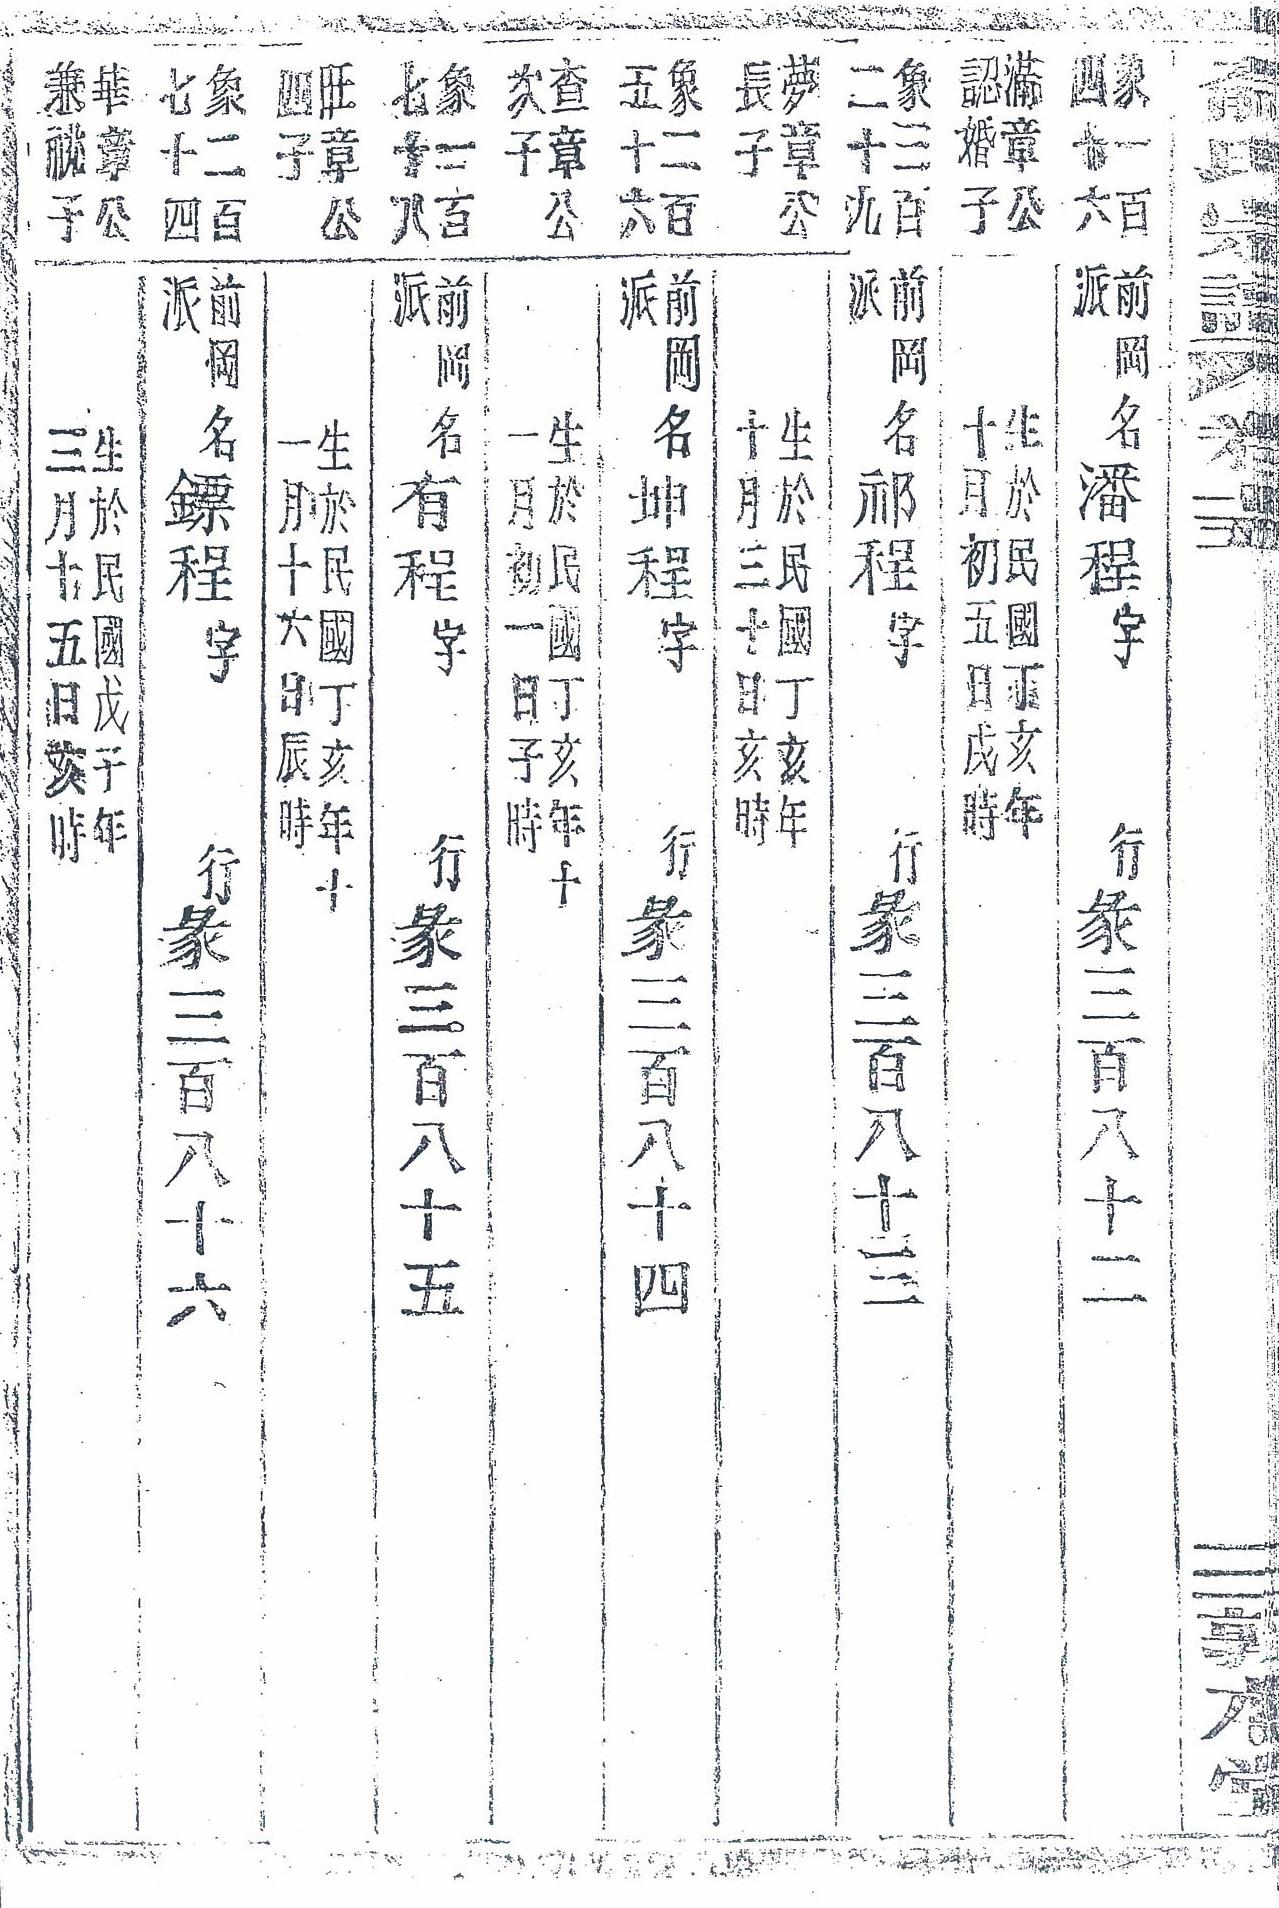 象一百
四十六
滿章公
認婚子
前岡
派
名潘程字
行彖三百八十二
生於民國丁亥年
十月初五日戌時
象三百
二十九
夢章公
長子
前岡
派
名祁程字
行彖三百八十三
生於民國丁亥年
十月三十日亥時
象二百
五十六
查章公
次子
前岡
派
名坤程字
行彖三百八十四
生於民國丁亥年十
一月初一日子時
象二百
七十八
旺章公
四子
前岡
派
名有程字
行彖三百八十五
生於民國丁亥年十
一月十六日辰時
象二百
七十四
華章公
兼祧子
前岡
派
名鏢程字
行彖三百八十六
生於民國戊子年
三月十五日亥時